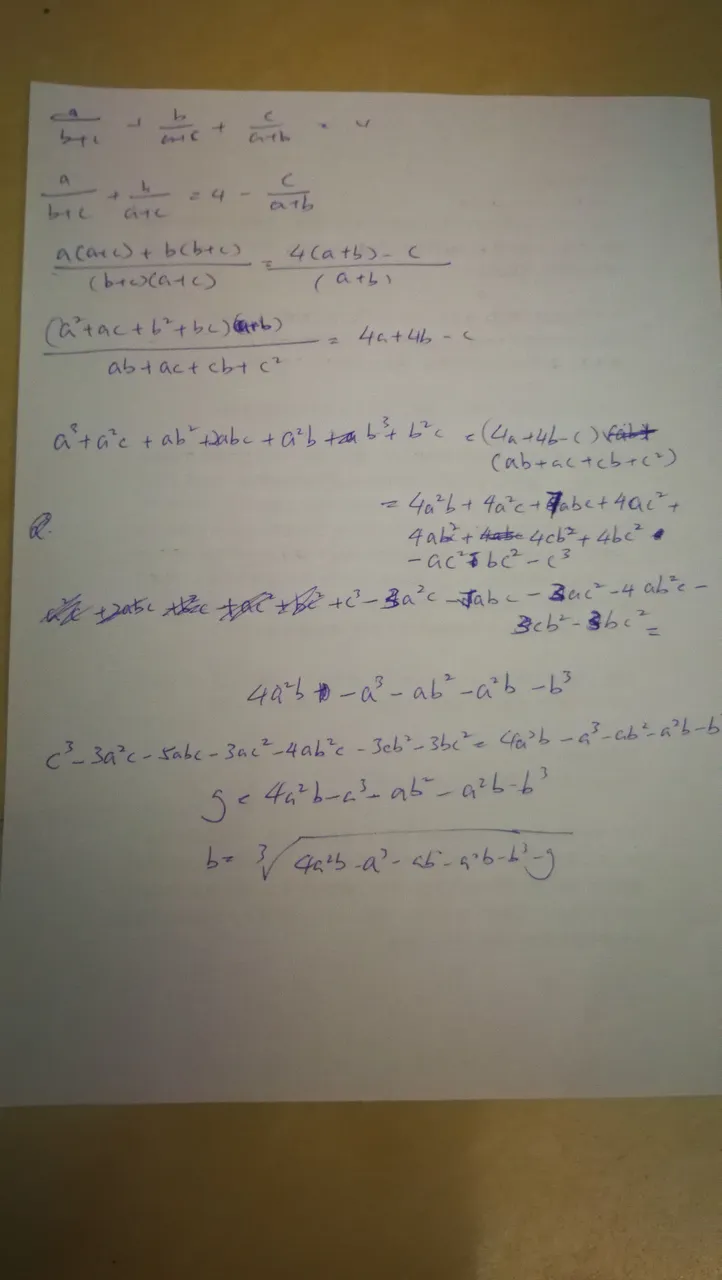 a/(b+c) + b/(a+c) + c/(a+b) = 4
a/(b+c) + b/(a+c) = 4 - c/(a+b)
(a(a+c) + b(b+c))/((b+c)(a+c)) = (4(a+b) - c)/((a+b))
((a²+ac+b²+bc)(a+b))/(ab+ac+cb+c²) = 4a+4b - c
a³+a²c + ab²+2abc + a²b + b³+ b²c = (4a+4b-c)
(ab+ac+cb+c²)
= 4a²b + 4a²c + 7abc + 4ac² +
4ab² + 4cb² + 4bc²
- ac² - bc² - c³
+ c³ - 3a²c - 5abc - 3ac² - 4ab²c -
3cb² - 3bc² =
4a²b - a³ - ab² - a²b - b³
c³ - 3a²c - 5abc - 3ac² - 4ab²c - 3cb² - 3bc² = 4a²b - a³ - ab² - a²b - b
g = 4a²b - a³ - ab² - a²b - b³
b = ³√(4a²b - a³ - ab - a²b - b³ - g)